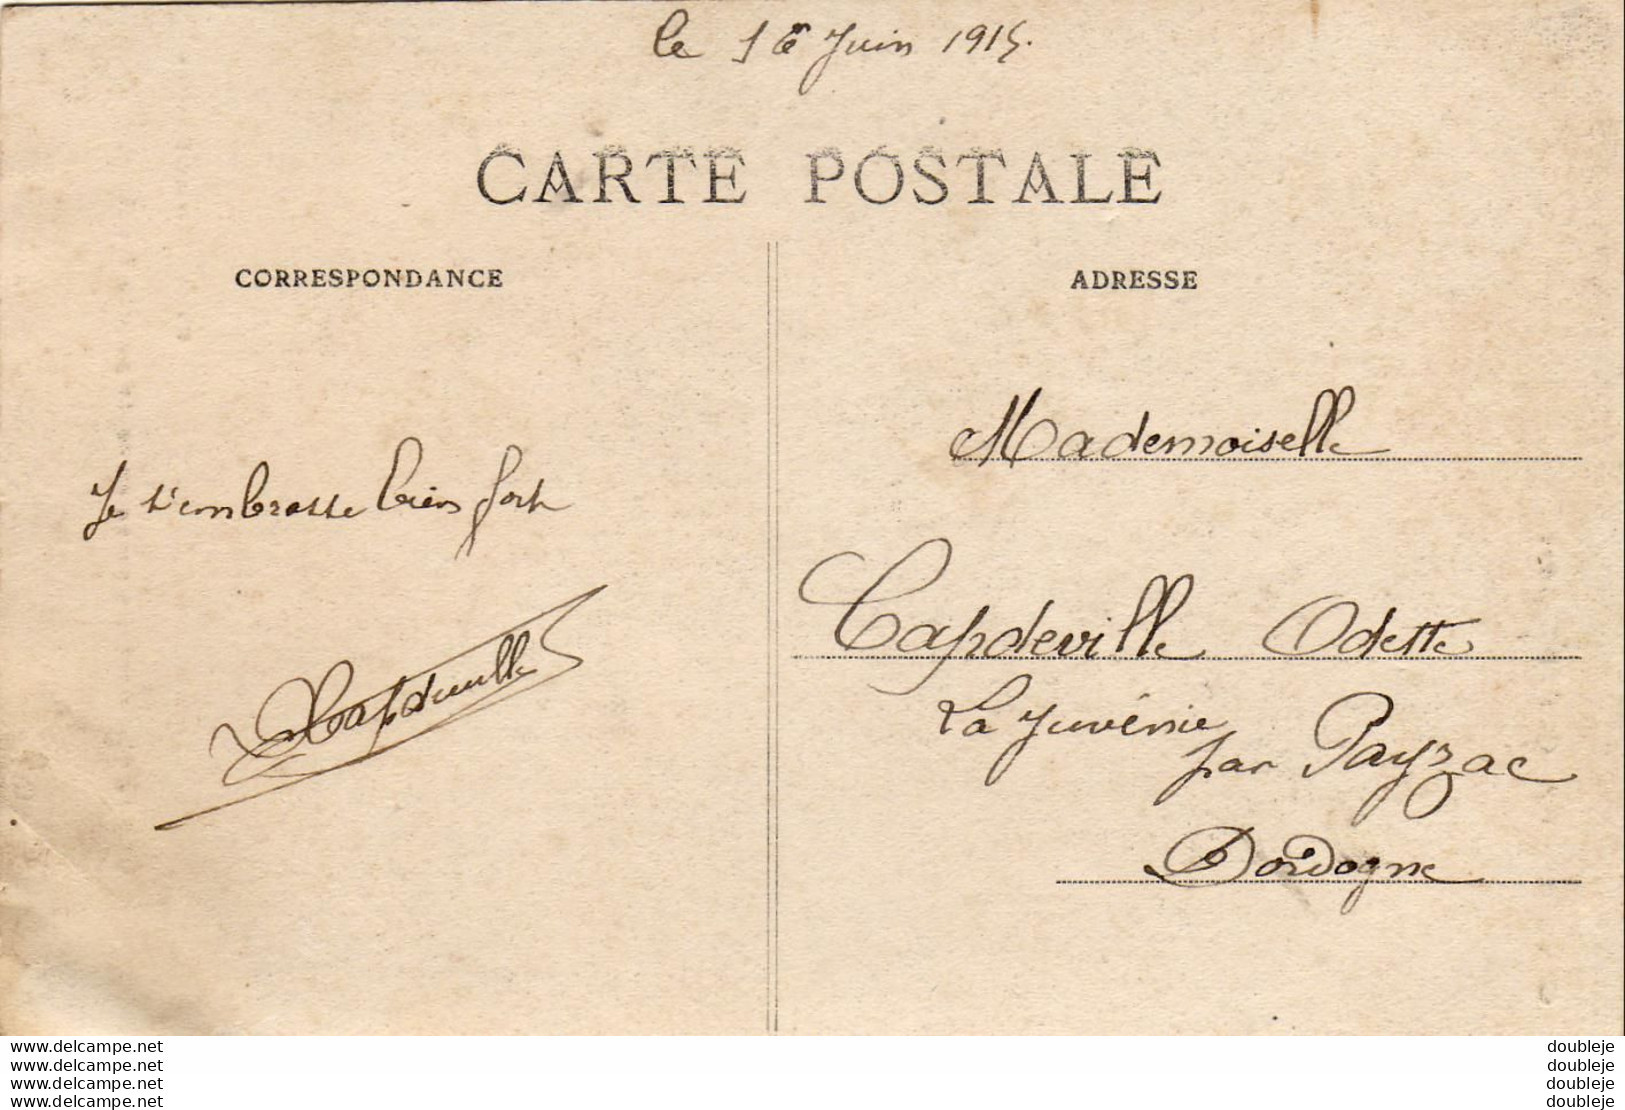 le 1er Juin 1915.
CARTE POSTALE
CORRESPONDANCE
ADRESSE
Je t'embrasse bien fort
Capdeville
Mademoiselle
Capdeville Odette
La Juvénie
par Payzac
Dordogne
www.delcampe.net
www.delcampe.net
www.delcampe.net
www.delcampe.net
doubleje
doubleje
doubleje
doubleje